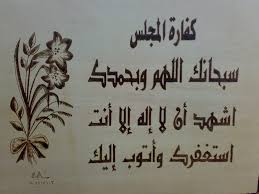 كفارة المجلس
سبحانك اللهم وبحمدك
اشهد أن لا إله إلا أنت
استغفرك وأتوب إليك